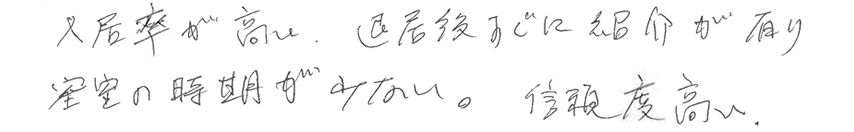 入居率が高い. 退居後すぐに紹介が有り
空室の時期が少ない。 信頼度高い.